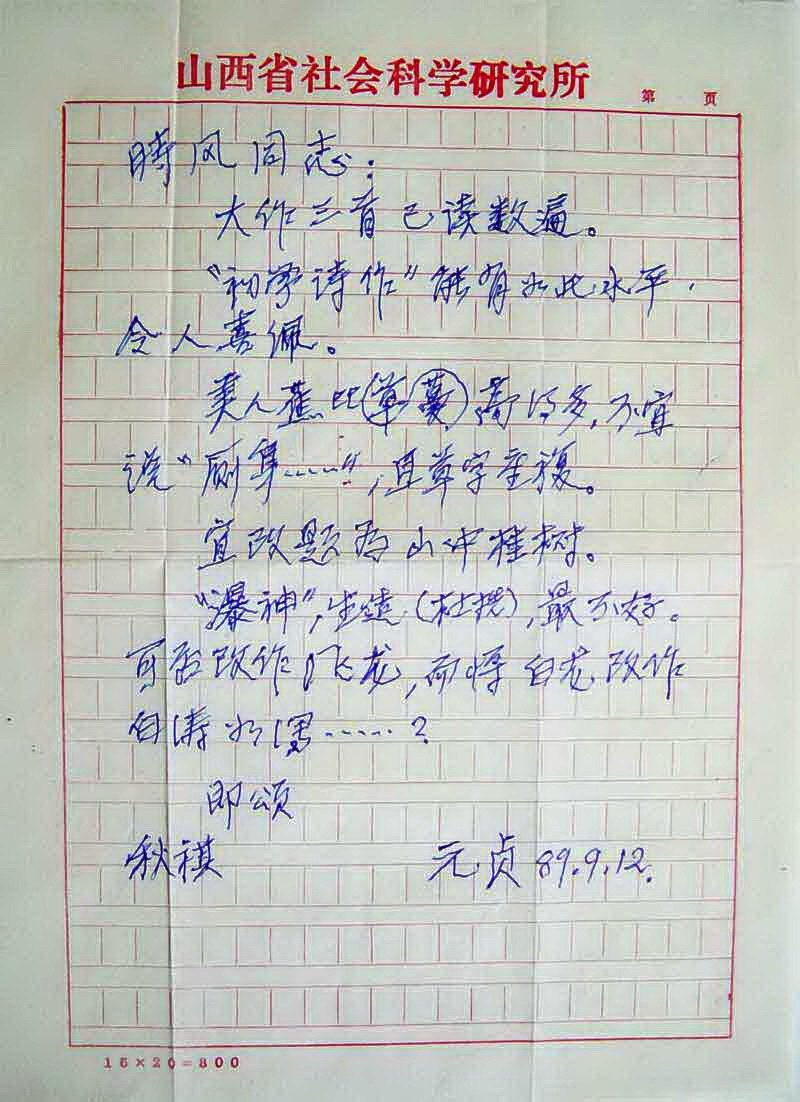 山西省社会科学研究所
第 页
时风同志：
大作三首已读数遍。
“初学诗作”能有如此水平，
令人喜佩。
美人蕉比草蔓高得多，不宜
说“厕身……”，且草字重复。
宜改题为山中桂树。
“瀑神”，生造（杜撰），最不好。
可否改作飞龙，而将白龙改作
白涛如澷……？
即颂
秋祺 元贞 89.9.12.
15×20=300